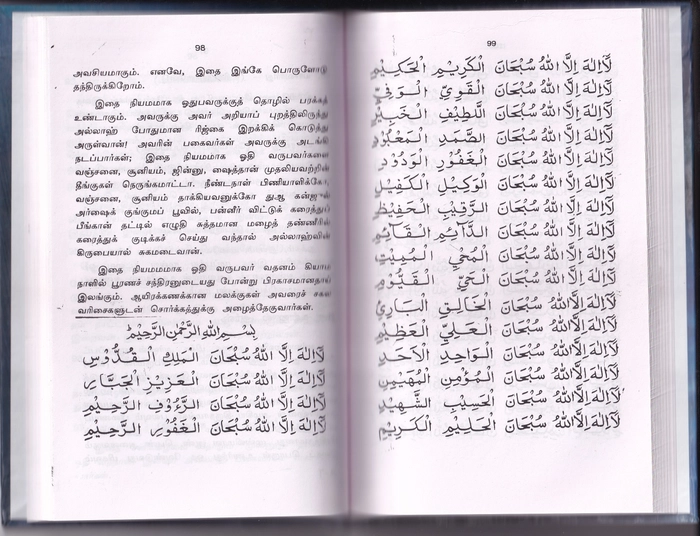 98
அவசியமாகும். எனவே, இதை இங்கே பொருளோடு
தந்திருக்கிறோம்.
இதை நியமமாக ஓதுபவருக்குத் தொழில் பரக்கத்
உண்டாகும். அவருக்கு அவர் அறியாப் புறத்திலிருந்து
அல்லாஹ் போதுமான ரிஜ்கை இறக்கிக் கொடுத்து
அருள்வான்! அவரின் பகைவர்கள் அவருக்கு அடங்கி
நடப்பார்கள்; இதை நியமமாக ஓதி வருபவர்களை
வஞ்சனை, சூனியம், ஜின்னு, ஷைத்தான் முதலியவற்றின்
தீங்குகள் நெருங்கமாட்டா. நீண்டநாள் பிணியாளிக்கோ,
வஞ்சனை, சூனியம் தாக்கியவனுக்கோ துஆ கன்ஜுல்
அர்ஷைக் குங்குமப் பூவில், பன்னீர் விட்டுக் கரைத்துப்
பீங்கான் தட்டில் எழுதி சுத்தமான மழைத் தண்ணீரில்
கரைத்துக் குடிக்கச் செய்து வந்தால் அல்லாஹ்வின்
கிருபையால் சுகமடைவான்.
இதை நியமமாக ஓதி வருபவர் வதனம் கியாம
நாளில் பூரணச் சந்திரனுடையது போன்று பிரகாசமானதாய்
இலங்கும். ஆயிரக்கணக்கான மலக்குகள் அவரைச் சகல
வரிசைகளுடன் சொர்க்கத்துக்கு அழைத்தேகுவார்கள்.
بِسْمِ اللهِ الرَّحْمٰنِ الرَّحِيْمِ
لَآ اِلٰهَ اِلَّا اللهُ سُبْحَانَ الْمَلِكِ الْقُدُّوْسِ
لَآ اِلٰهَ اِلَّا اللهُ سُبْحَانَ الْعَزِيْزِ الْجَبَّارِ
لَآ اِلٰهَ اِلَّا اللهُ سُبْحَانَ الرَّءُوْفِ الرَّحِيْمِ
لَآ اِلٰهَ اِلَّا اللهُ سُبْحَانَ الْغَفُوْرِ الرَّحِيْمِ
99
لَآ اِلٰهَ اِلَّا اللهُ سُبْحَانَ الْكَرِيْمِ الْحَكِيْمِ
لَآ اِلٰهَ اِلَّا اللهُ سُبْحَانَ الْقَوِيِّ الْوَفِيِّ
لَآ اِلٰهَ اِلَّا اللهُ سُبْحَانَ اللَّطِيْفِ الْخَبِيْرِ
لَآ اِلٰهَ اِلَّا اللهُ سُبْحَانَ الصَّمَدِ الْمَعْبُوْدِ
لَآ اِلٰهَ اِلَّا اللهُ سُبْحَانَ الْغَفُوْرِ الْوَدُوْدِ
لَآ اِلٰهَ اِلَّا اللهُ سُبْحَانَ الْوَكِيْلِ الْكَفِيْلِ
لَآ اِلٰهَ اِلَّا اللهُ سُبْحَانَ الرَّقِيْبِ الْحَفِيْظِ
لَآ اِلٰهَ اِلَّا اللهُ سُبْحَانَ الدَّآئِمِ الْقَآئِمِ
لَآ اِلٰهَ اِلَّا اللهُ سُبْحَانَ الْمُحْيِ الْمُمِيْتِ
لَآ اِلٰهَ اِلَّا اللهُ سُبْحَانَ الْحَيِّ الْقَيُّوْمِ
لَآ اِلٰهَ اِلَّا اللهُ سُبْحَانَ الْخَالِقِ الْبَارِئِ
لَآ اِلٰهَ اِلَّا اللهُ سُبْحَانَ الْعَلِيِّ الْعَظِيْمِ
لَآ اِلٰهَ اِلَّا اللهُ سُبْحَانَ الْوَاحِدِ الْاَحَدِ
لَآ اِلٰهَ اِلَّا اللهُ سُبْحَانَ الْمُؤْمِنِ الْمُهَيْمِنِ
لَآ اِلٰهَ اِلَّا اللهُ سُبْحَانَ الْحَسِيْبِ الشَّهِيْدِ
لَآ اِلٰهَ اِلَّا اللهُ سُبْحَانَ الْحَلِيْمِ الْكَرِيْمِ